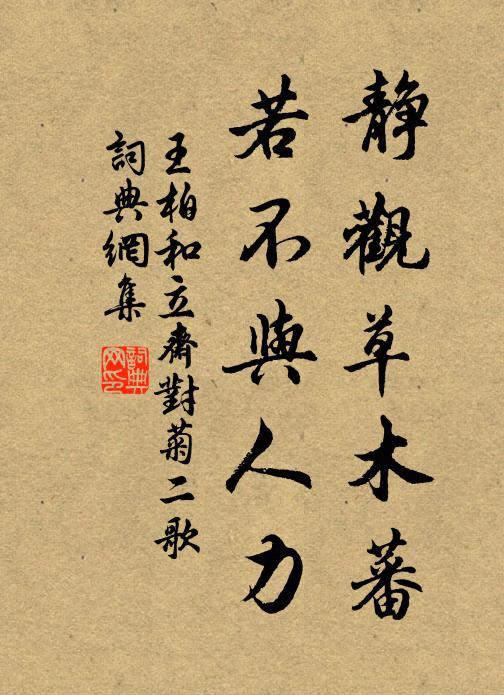 静觀草木蕃
若不與人力
王柏和立齋對菊二歌
詞典網集
詞典
网印